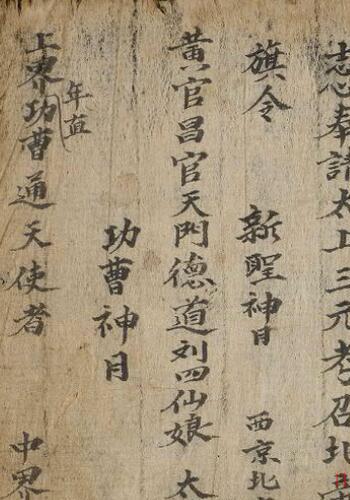 志心奉請太上三元考召北
旗令 新聖神日 西京北
黄官昌官天門德道刘四仙娘 太
功曹神目
年直
上界功曹通天使者 中界